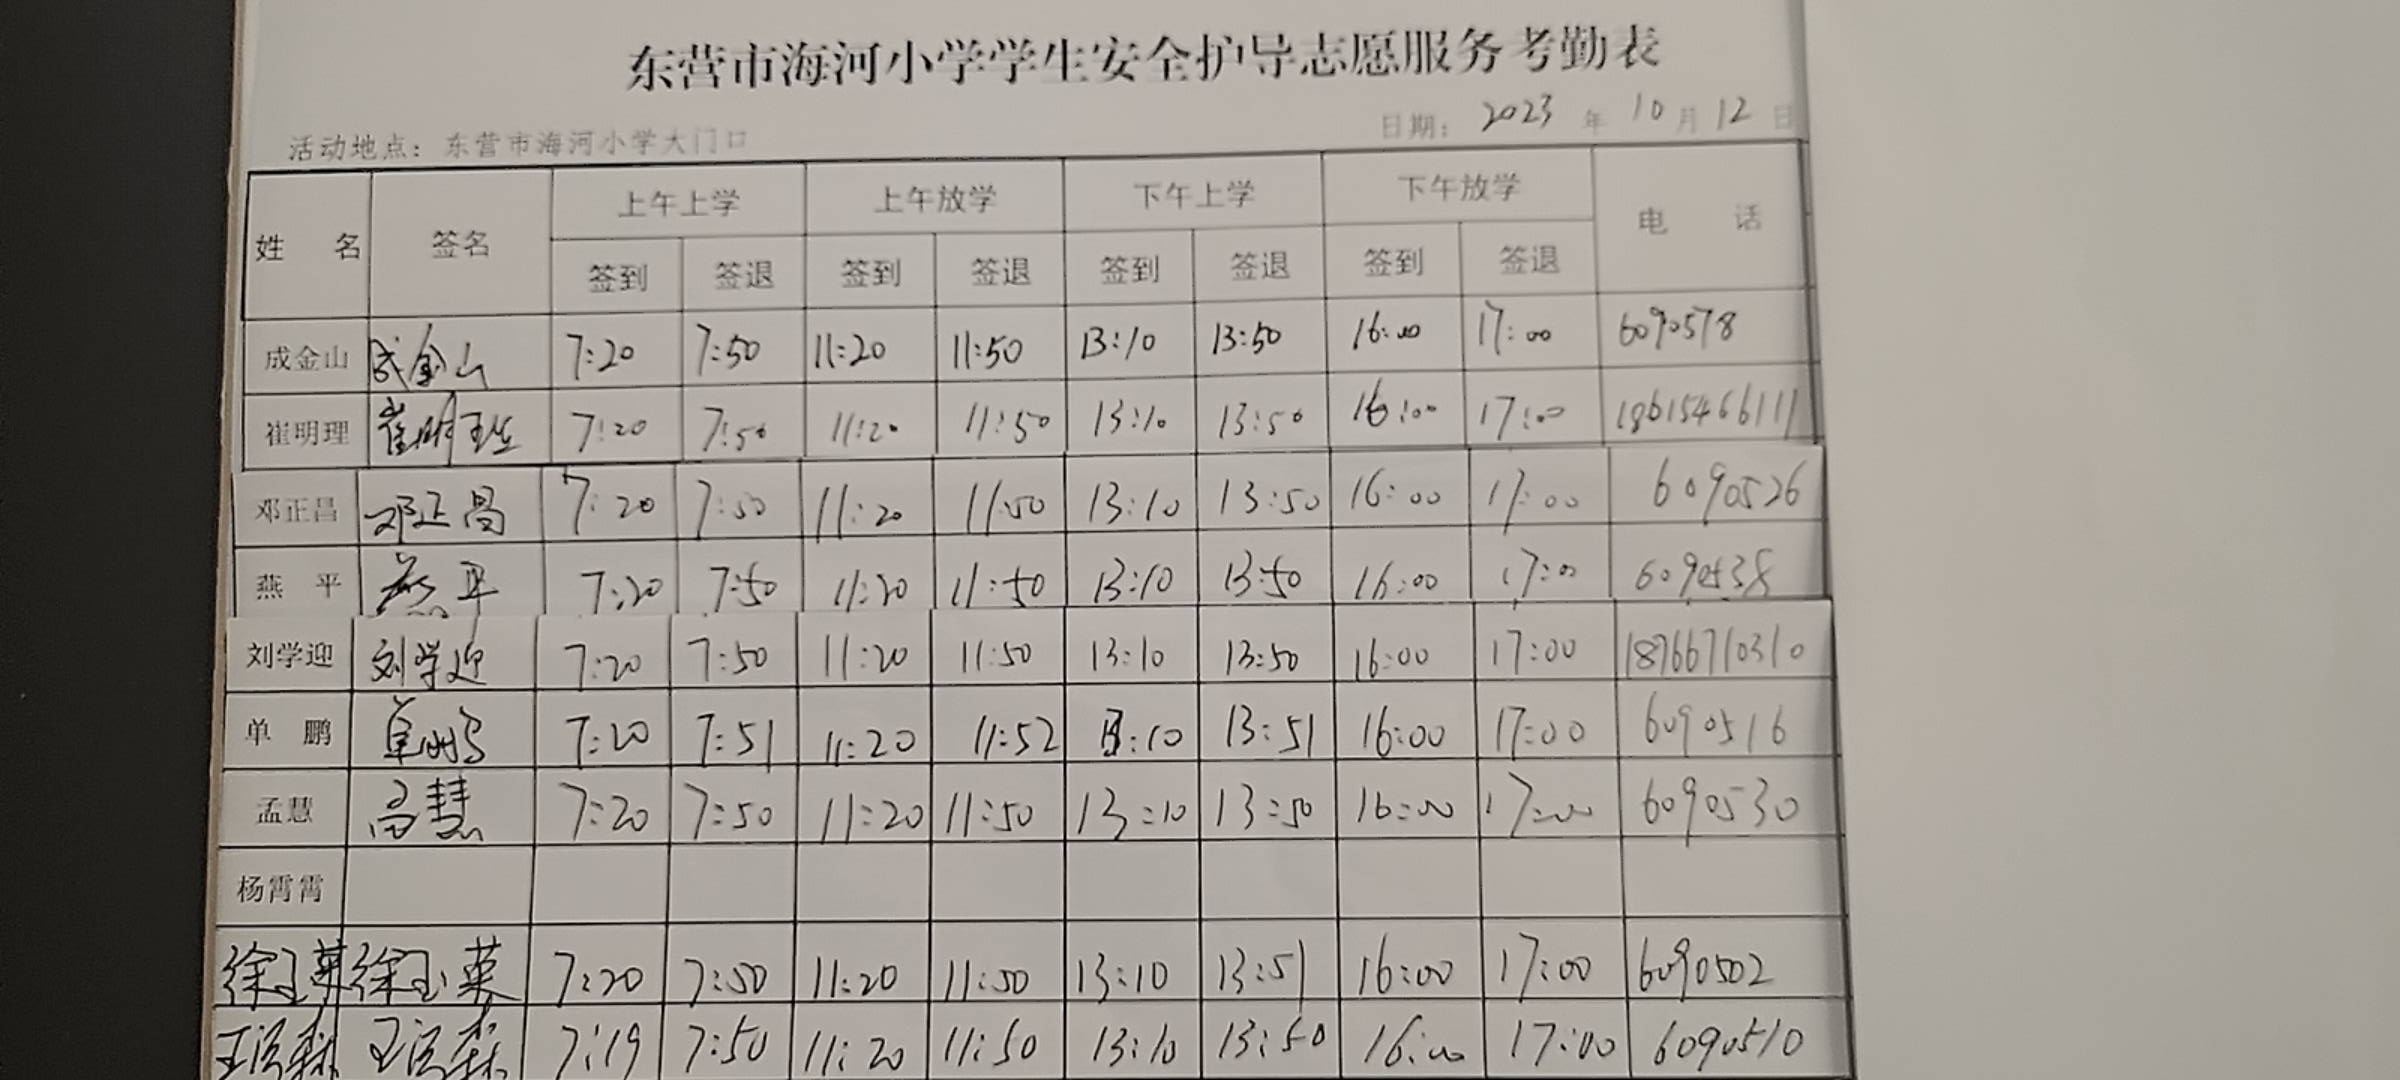 东营市海河小学学生安全护导志愿服务考勤表
活动地点：东营市海河小学大门口 日期：2023年10月12日
姓名 签名 上午上学 上午放学 下午上学 下午放学 电话
签到 签退 签到 签退 签到 签退 签到 签退
成金山 成金山 7:20 7:50 11:20 11:50 13:10 13:50 16:00 17:00 6090578
崔明理 崔明理 7:20 7:50 11:20 11:50 13:10 13:50 16:00 17:00 18615466111
邓正昌 邓正昌 7:20 7:50 11:20 11:50 13:10 13:50 16:00 17:00 6090526
燕平 燕平 7:20 7:50 11:20 11:50 13:10 13:50 16:00 17:00 6090538
刘学迎 刘学迎 7:20 7:50 11:20 11:50 13:10 13:50 16:00 17:00 18766710310
单鹏 单鹏 7:20 7:51 11:20 11:52 13:10 13:51 16:00 17:00 6090516
孟慧 高慧 7:20 7:50 11:20 11:50 13:10 13:50 16:00 17:00 6090530
杨霄霄
徐玉英 徐玉英 7:20 7:50 11:20 11:50 13:10 13:51 16:00 17:00 6090502
7:19 7:50 11:20 11:50 13:10 13:50 16:00 17:00 6090510